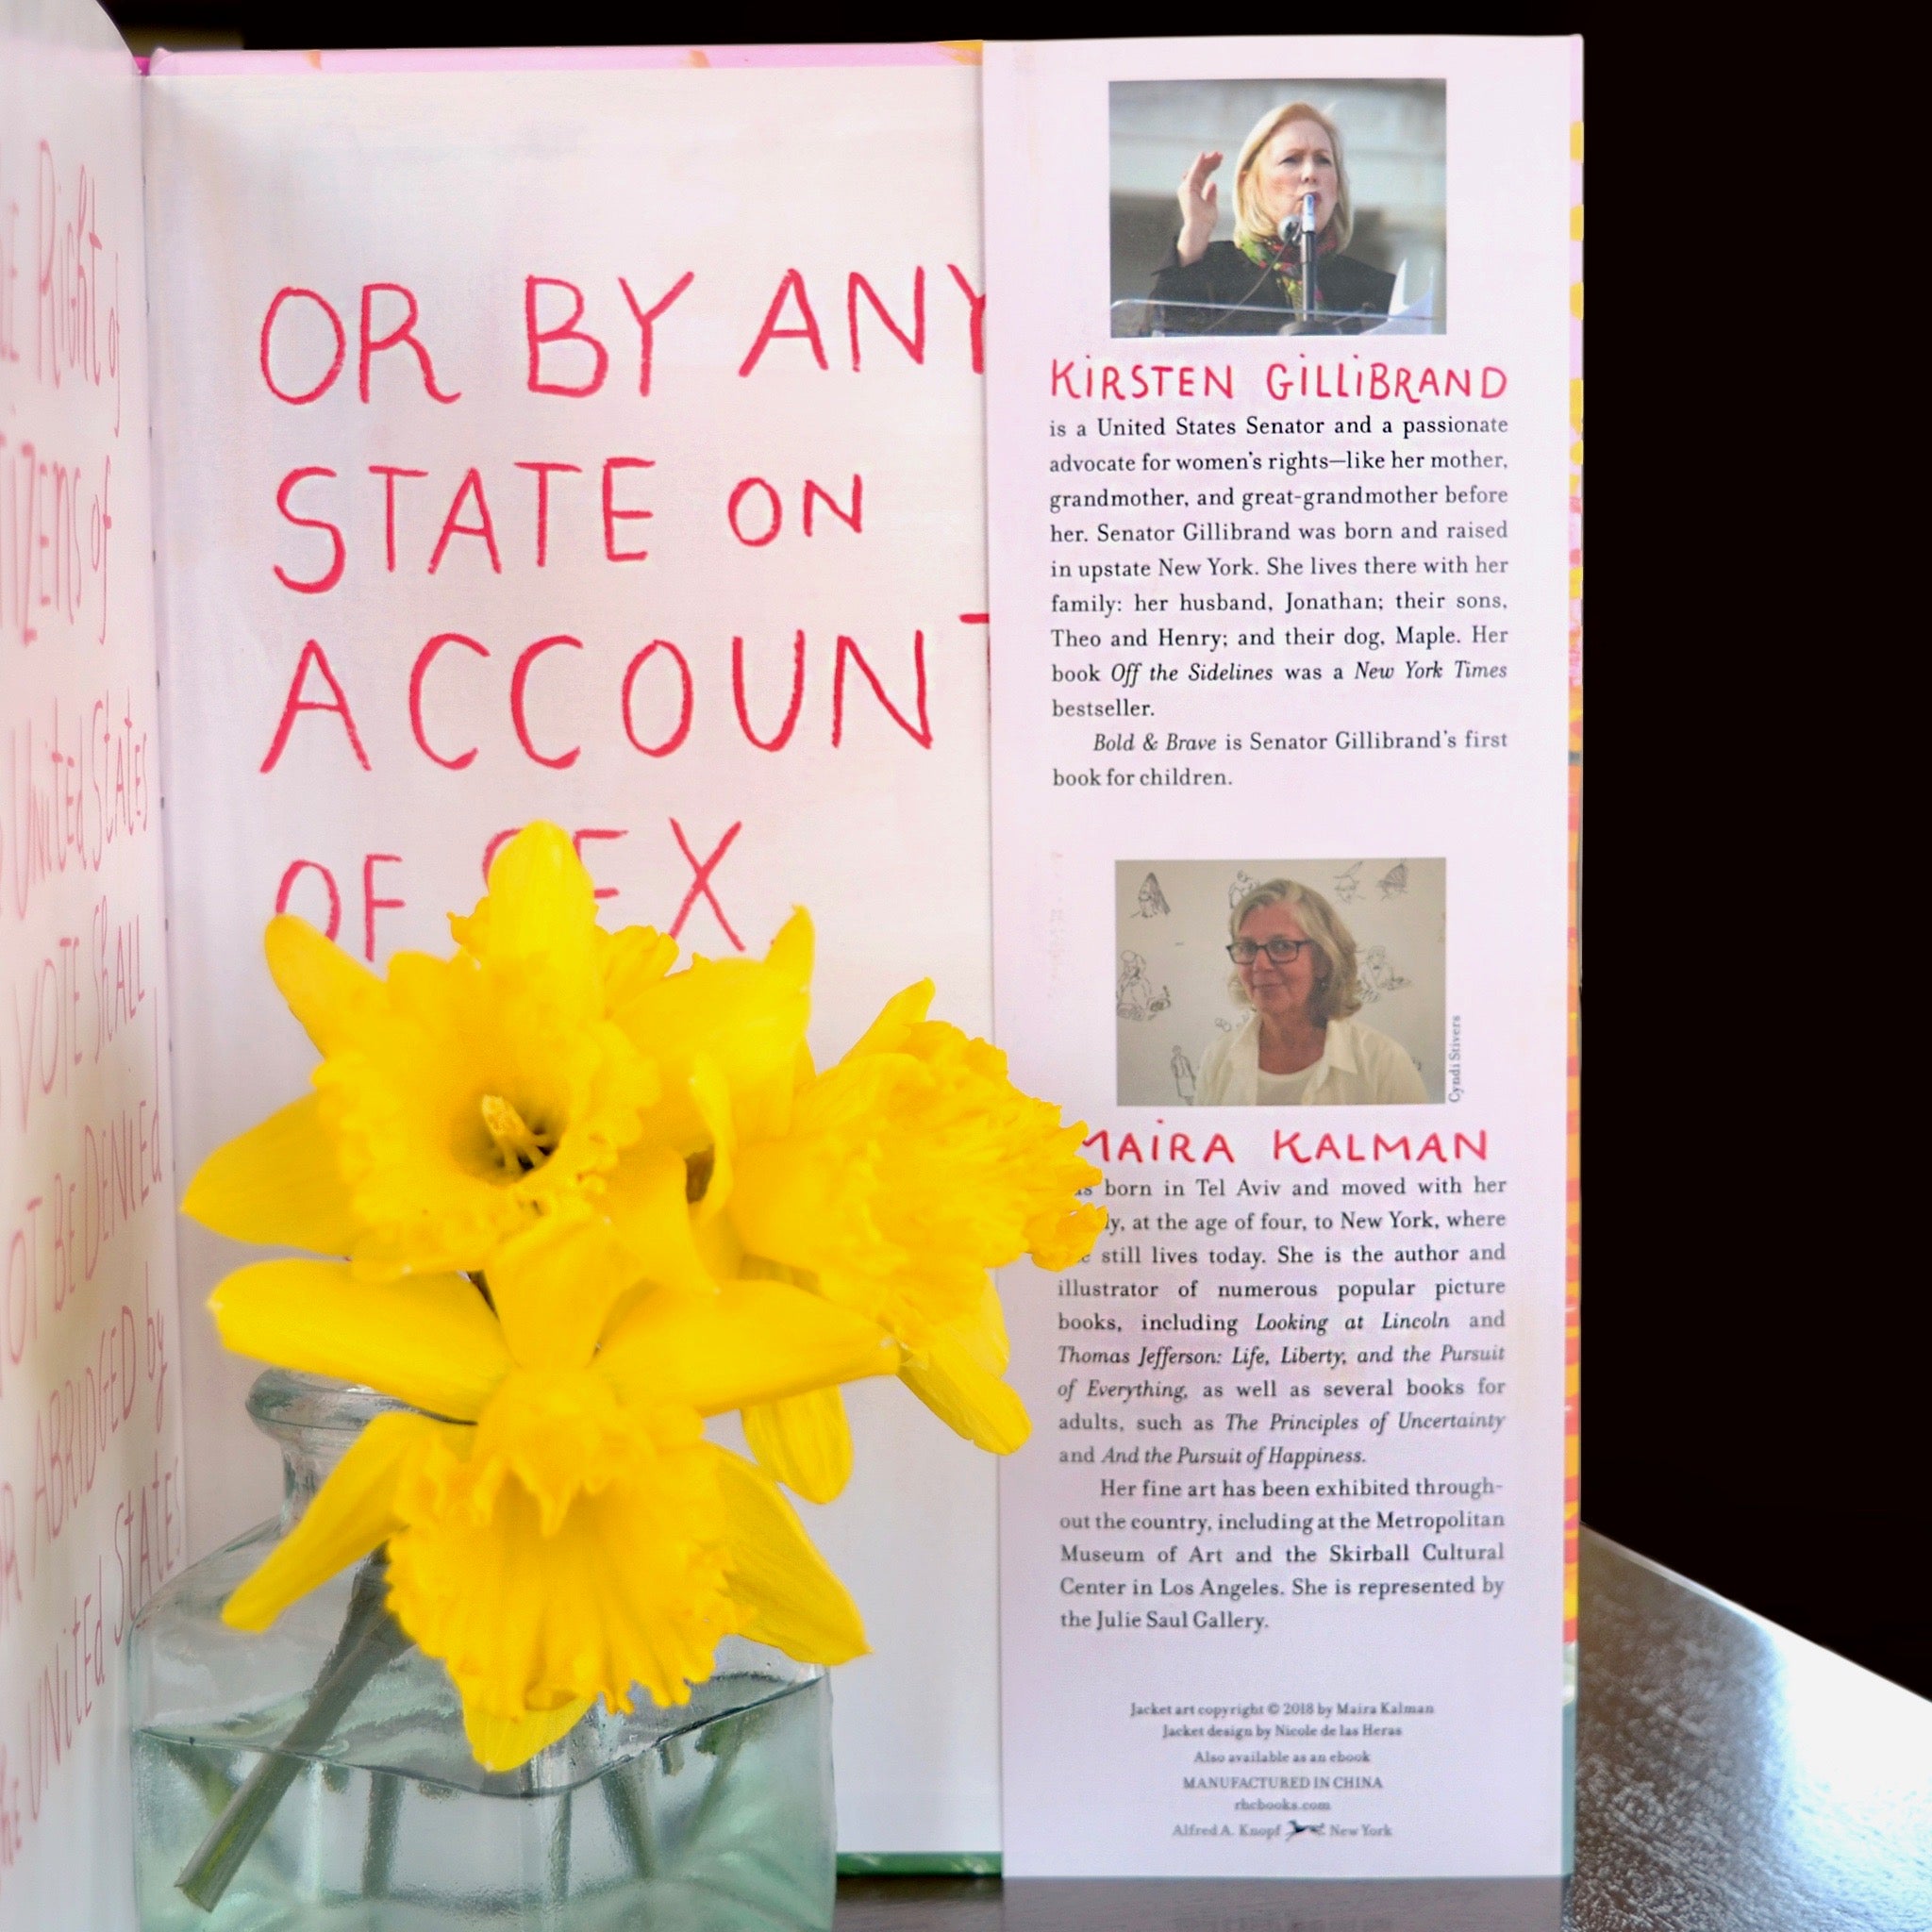 Right of
of
United States
VOTE SHALL
BE DENIED
ABRIDGED by
UNITED STATES
OR BY ANY
STATE ON
ACCOUNT
OF SEX
KIRSTEN GILLIBRAND
is a United States Senator and a passionate
advocate for women's rights—like her mother,
grandmother, and great-grandmother before
her. Senator Gillibrand was born and raised
in upstate New York. She lives there with her
family: her husband, Jonathan; their sons,
Theo and Henry; and their dog, Maple. Her
book Off the Sidelines was a New York Times
bestseller.
Bold & Brave is Senator Gillibrand's first
book for children.
Cyndi Stivers
MAIRA KALMAN
born in Tel Aviv and moved with her
at the age of four, to New York, where
still lives today. She is the author and
illustrator of numerous popular picture
books, including Looking at Lincoln and
Thomas Jefferson: Life, Liberty, and the Pursuit
of Everything, as well as several books for
adults, such as The Principles of Uncertainty
and And the Pursuit of Happiness.
Her fine art has been exhibited through-
out the country, including at the Metropolitan
Museum of Art and the Skirball Cultural
Center in Los Angeles. She is represented by
the Julie Saul Gallery.
Jacket art copyright © 2018 by Maira Kalman
Jacket design by Nicole de las Heras
Also available as an ebook
MANUFACTURED IN CHINA
rhcbooks.com
Alfred A. Knopf New York